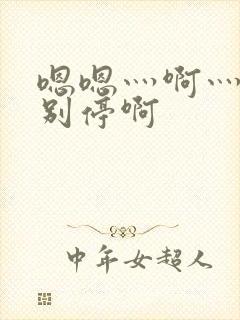 嗯嗯灬啊灬
别停啊
中年女超人